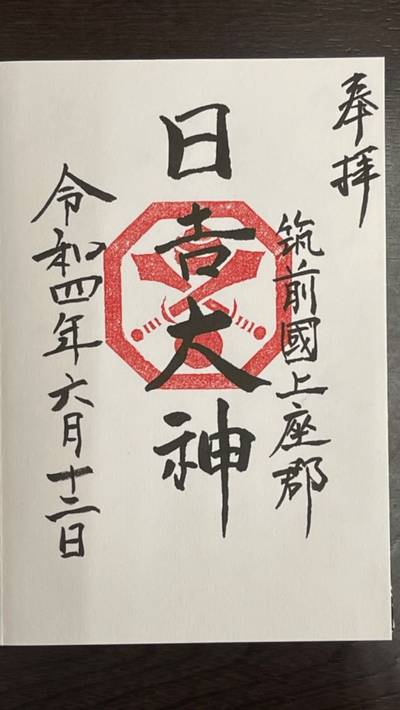 奉拝
筑前國上座郡
日吉大神
令和四年六月十二日